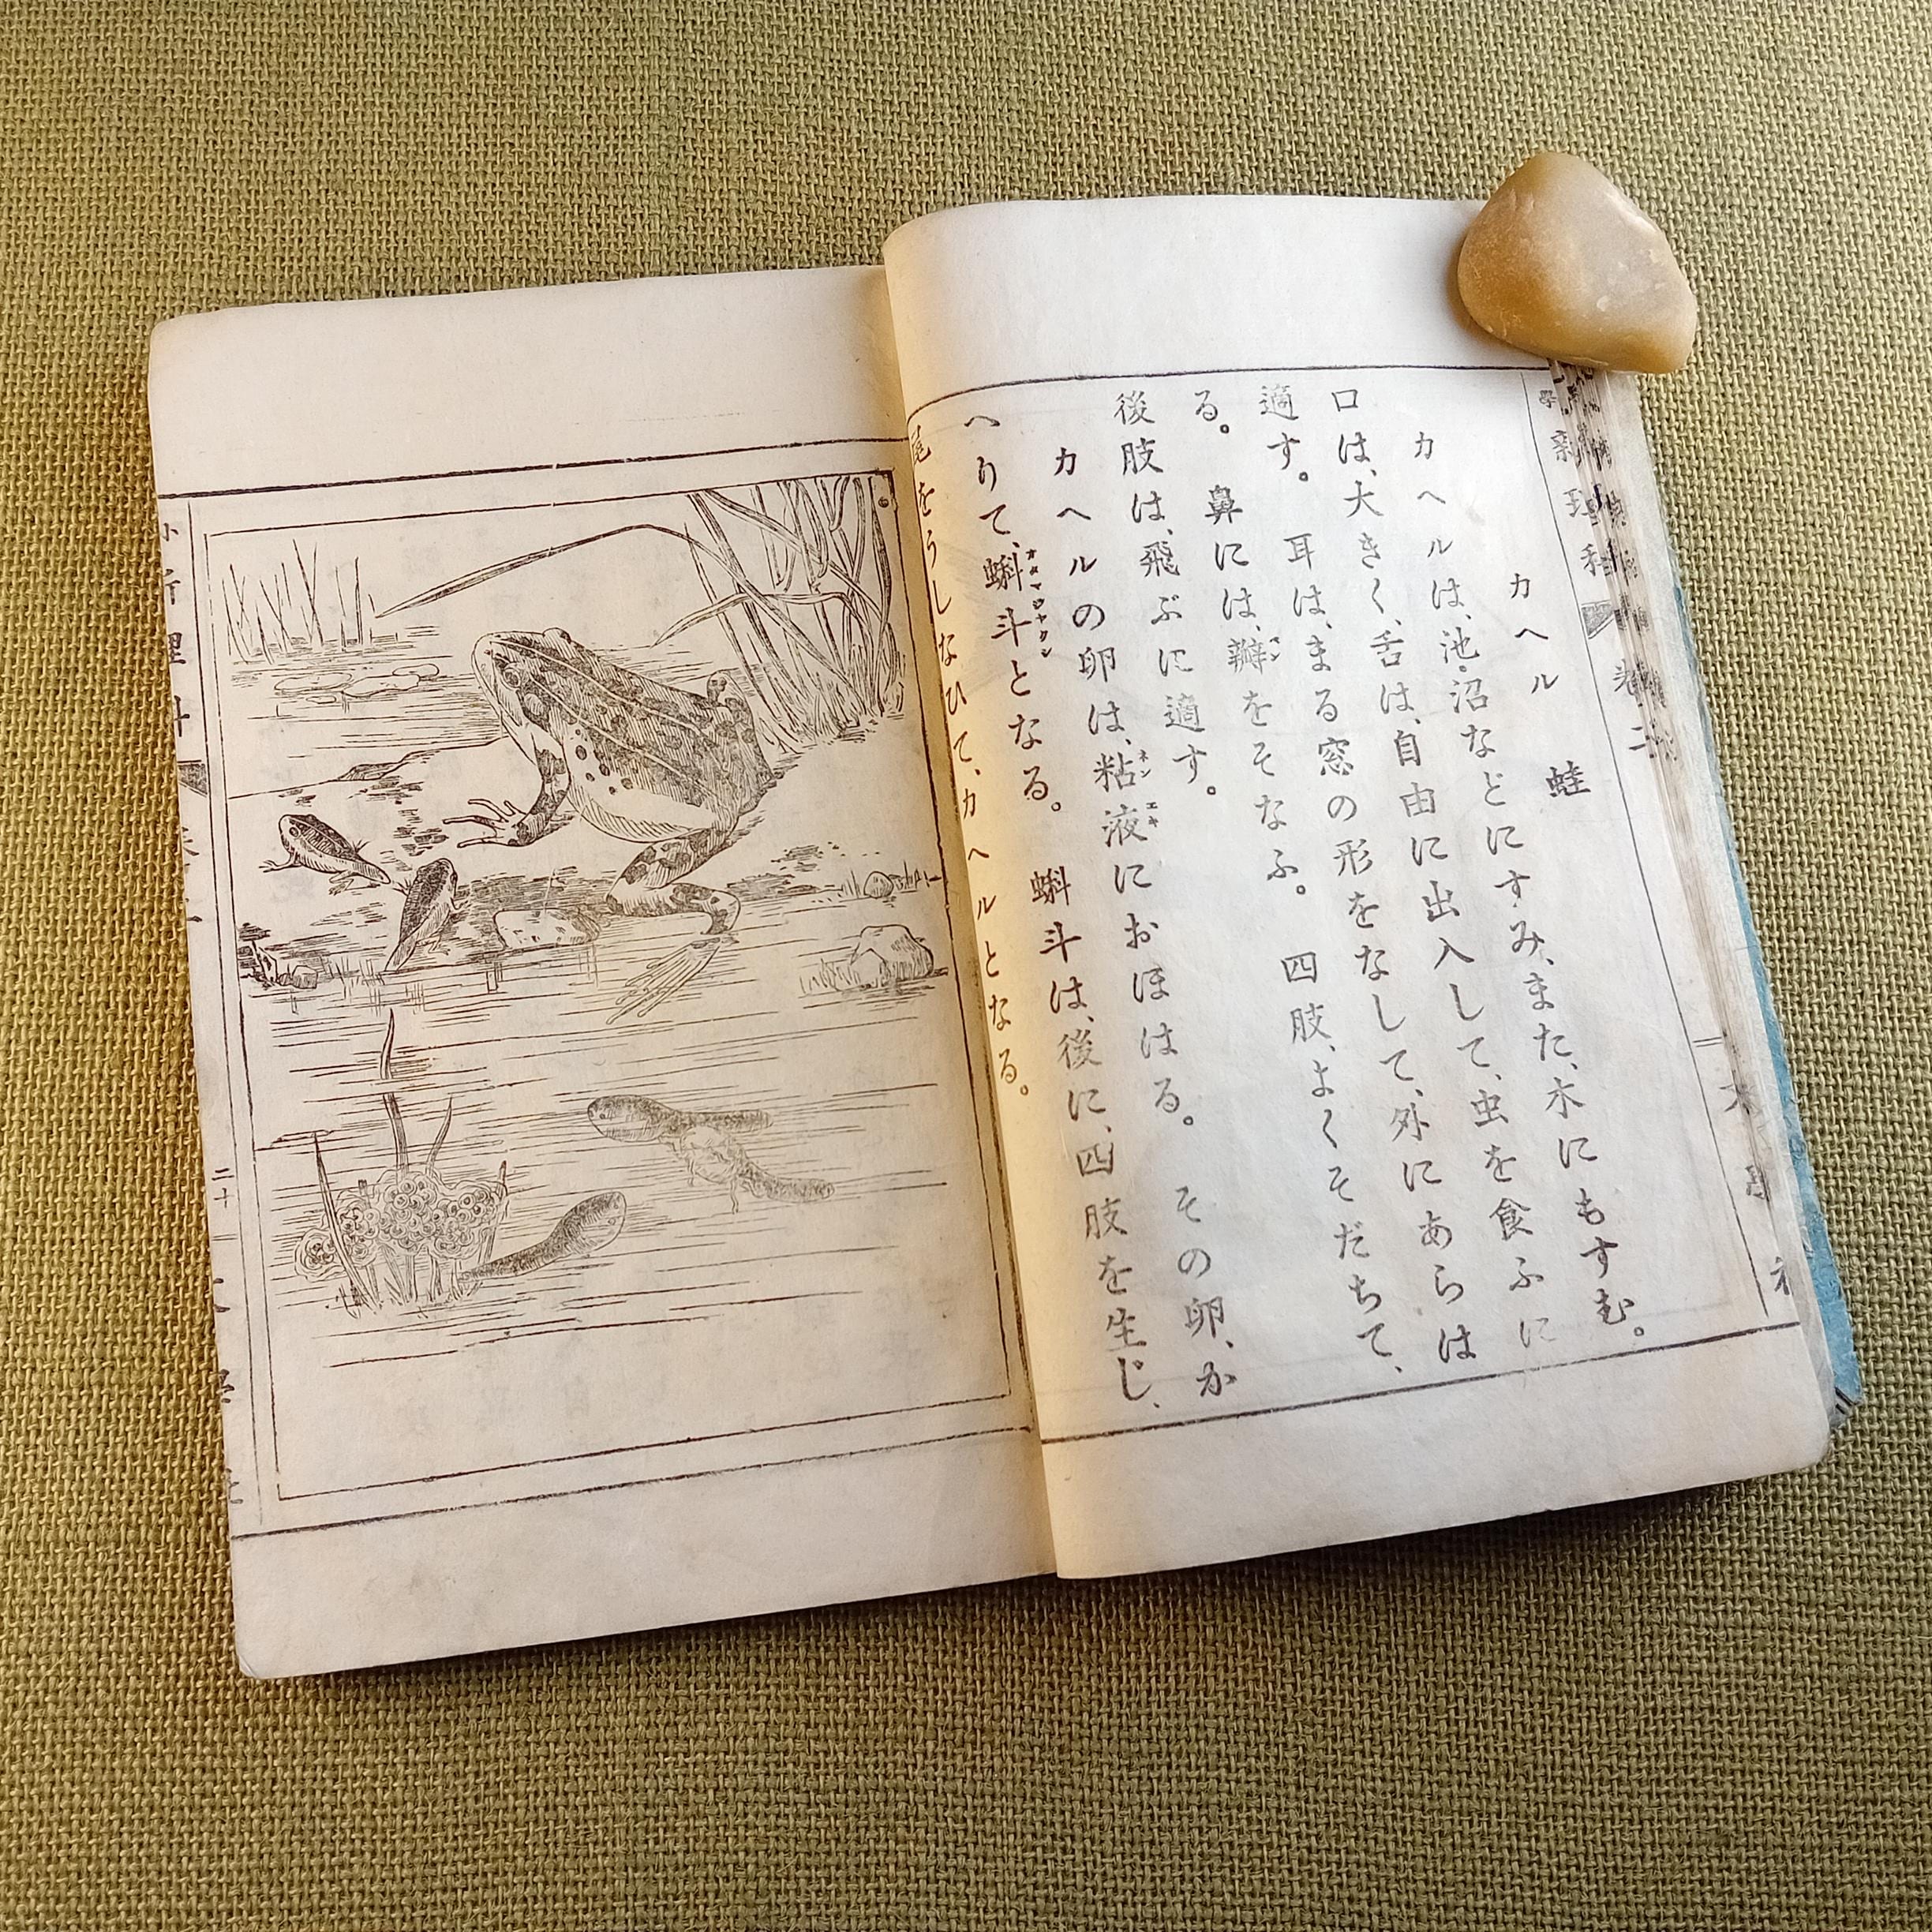 新理科 卷二
カヘル 蛙
カヘルは、池・沼などにすみ、また、木にもすむ。
口は、大きく、舌は、自由に出入して、虫を食ふに
適す。 耳は、まる窓の形をなして、外にあらは
る。 鼻には、瓣をそなふ。 四肢、よくそだちて、
後肢は、飛ぶに適す。
カヘルの卵は、粘液におほはる。 その卵、か
へりて、蝌斗となる。 蝌斗は、後に、四肢を生じ、
尾をうしなひて、カヘルとなる。
小新理科
二十